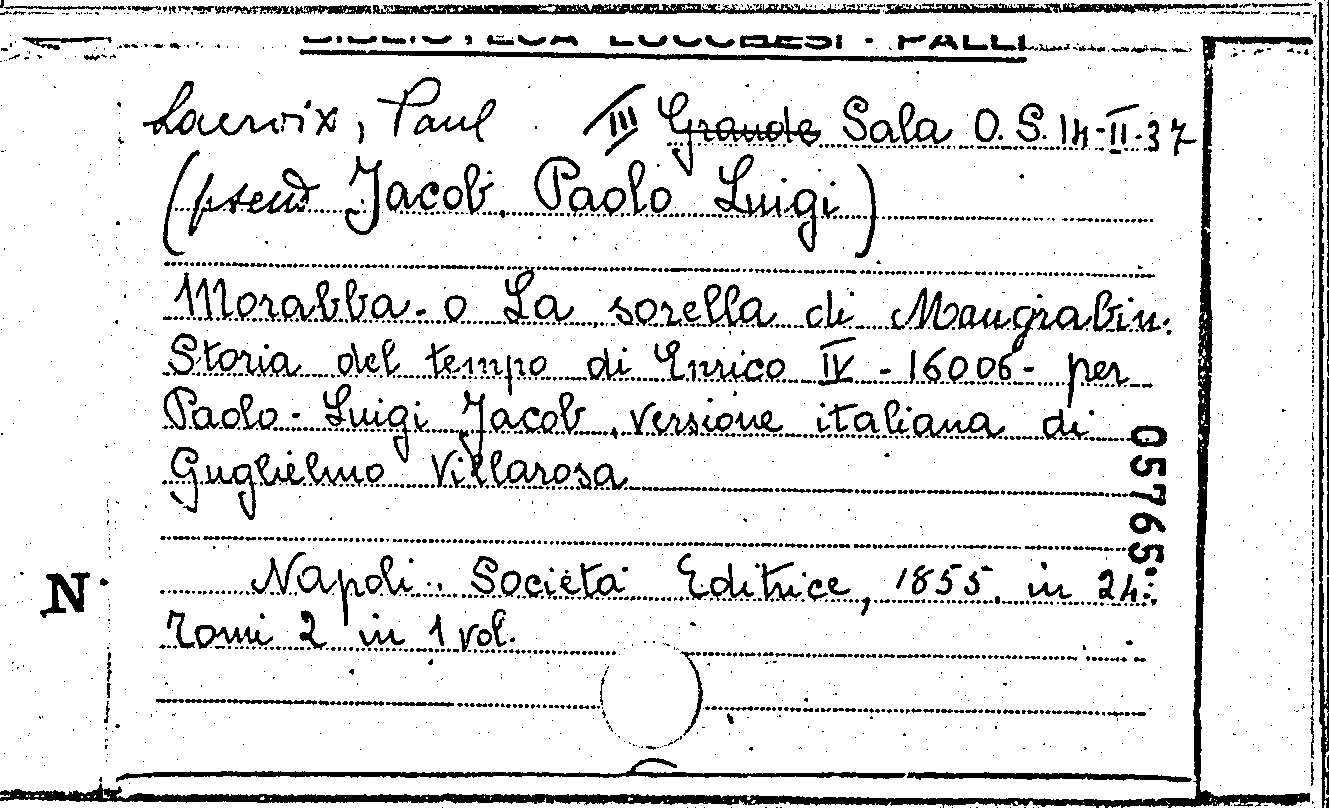 BIBLIOTECA LUCCHESI - PALLI
Lacroix, Paul III Grande Sala O.S. 14-II-37
(pseud Jacob, Paolo Luigi)
Morabba - o La sorella di Maugrabin.
Storia del tempo di Enrico IV - 16006 - per
Paolo - Luigi Jacob, versione italiana di
Guglielmo Villarosa
05765
Napoli. Società Editrice, 1855. in 24:
Tomi 2 in 1 vol.
N